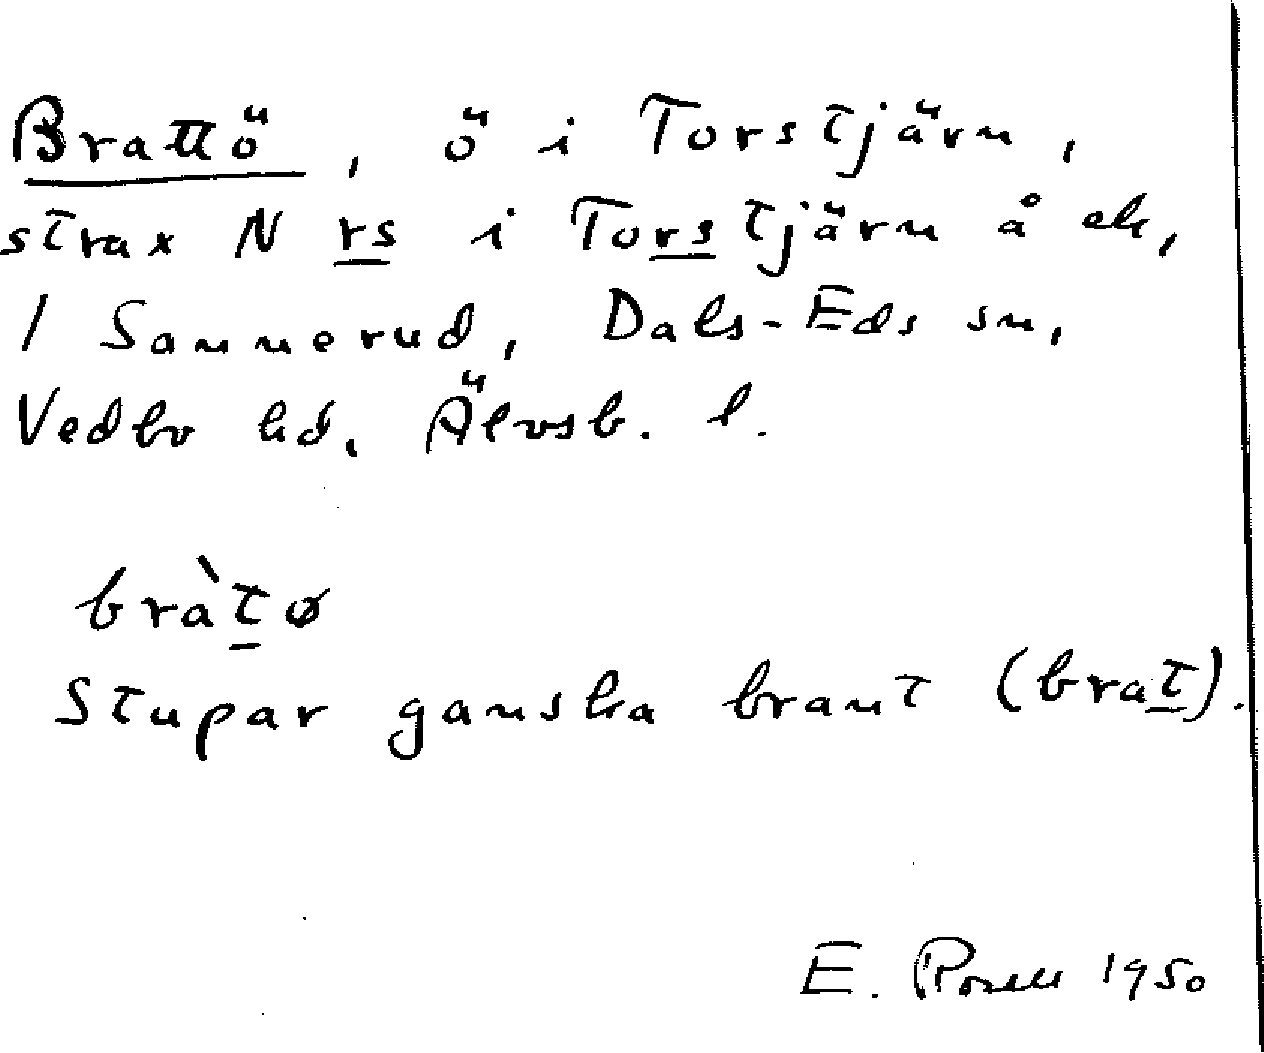 Brattö, ö i Torstjärn,
strax N rs i Torstjärn å ek,
1 Sannerud, Dals-Eds sn,
Vedbo hd, Älvsb. l.
bràtø
Stupar ganska brant (brat).
E. Rosell 1950